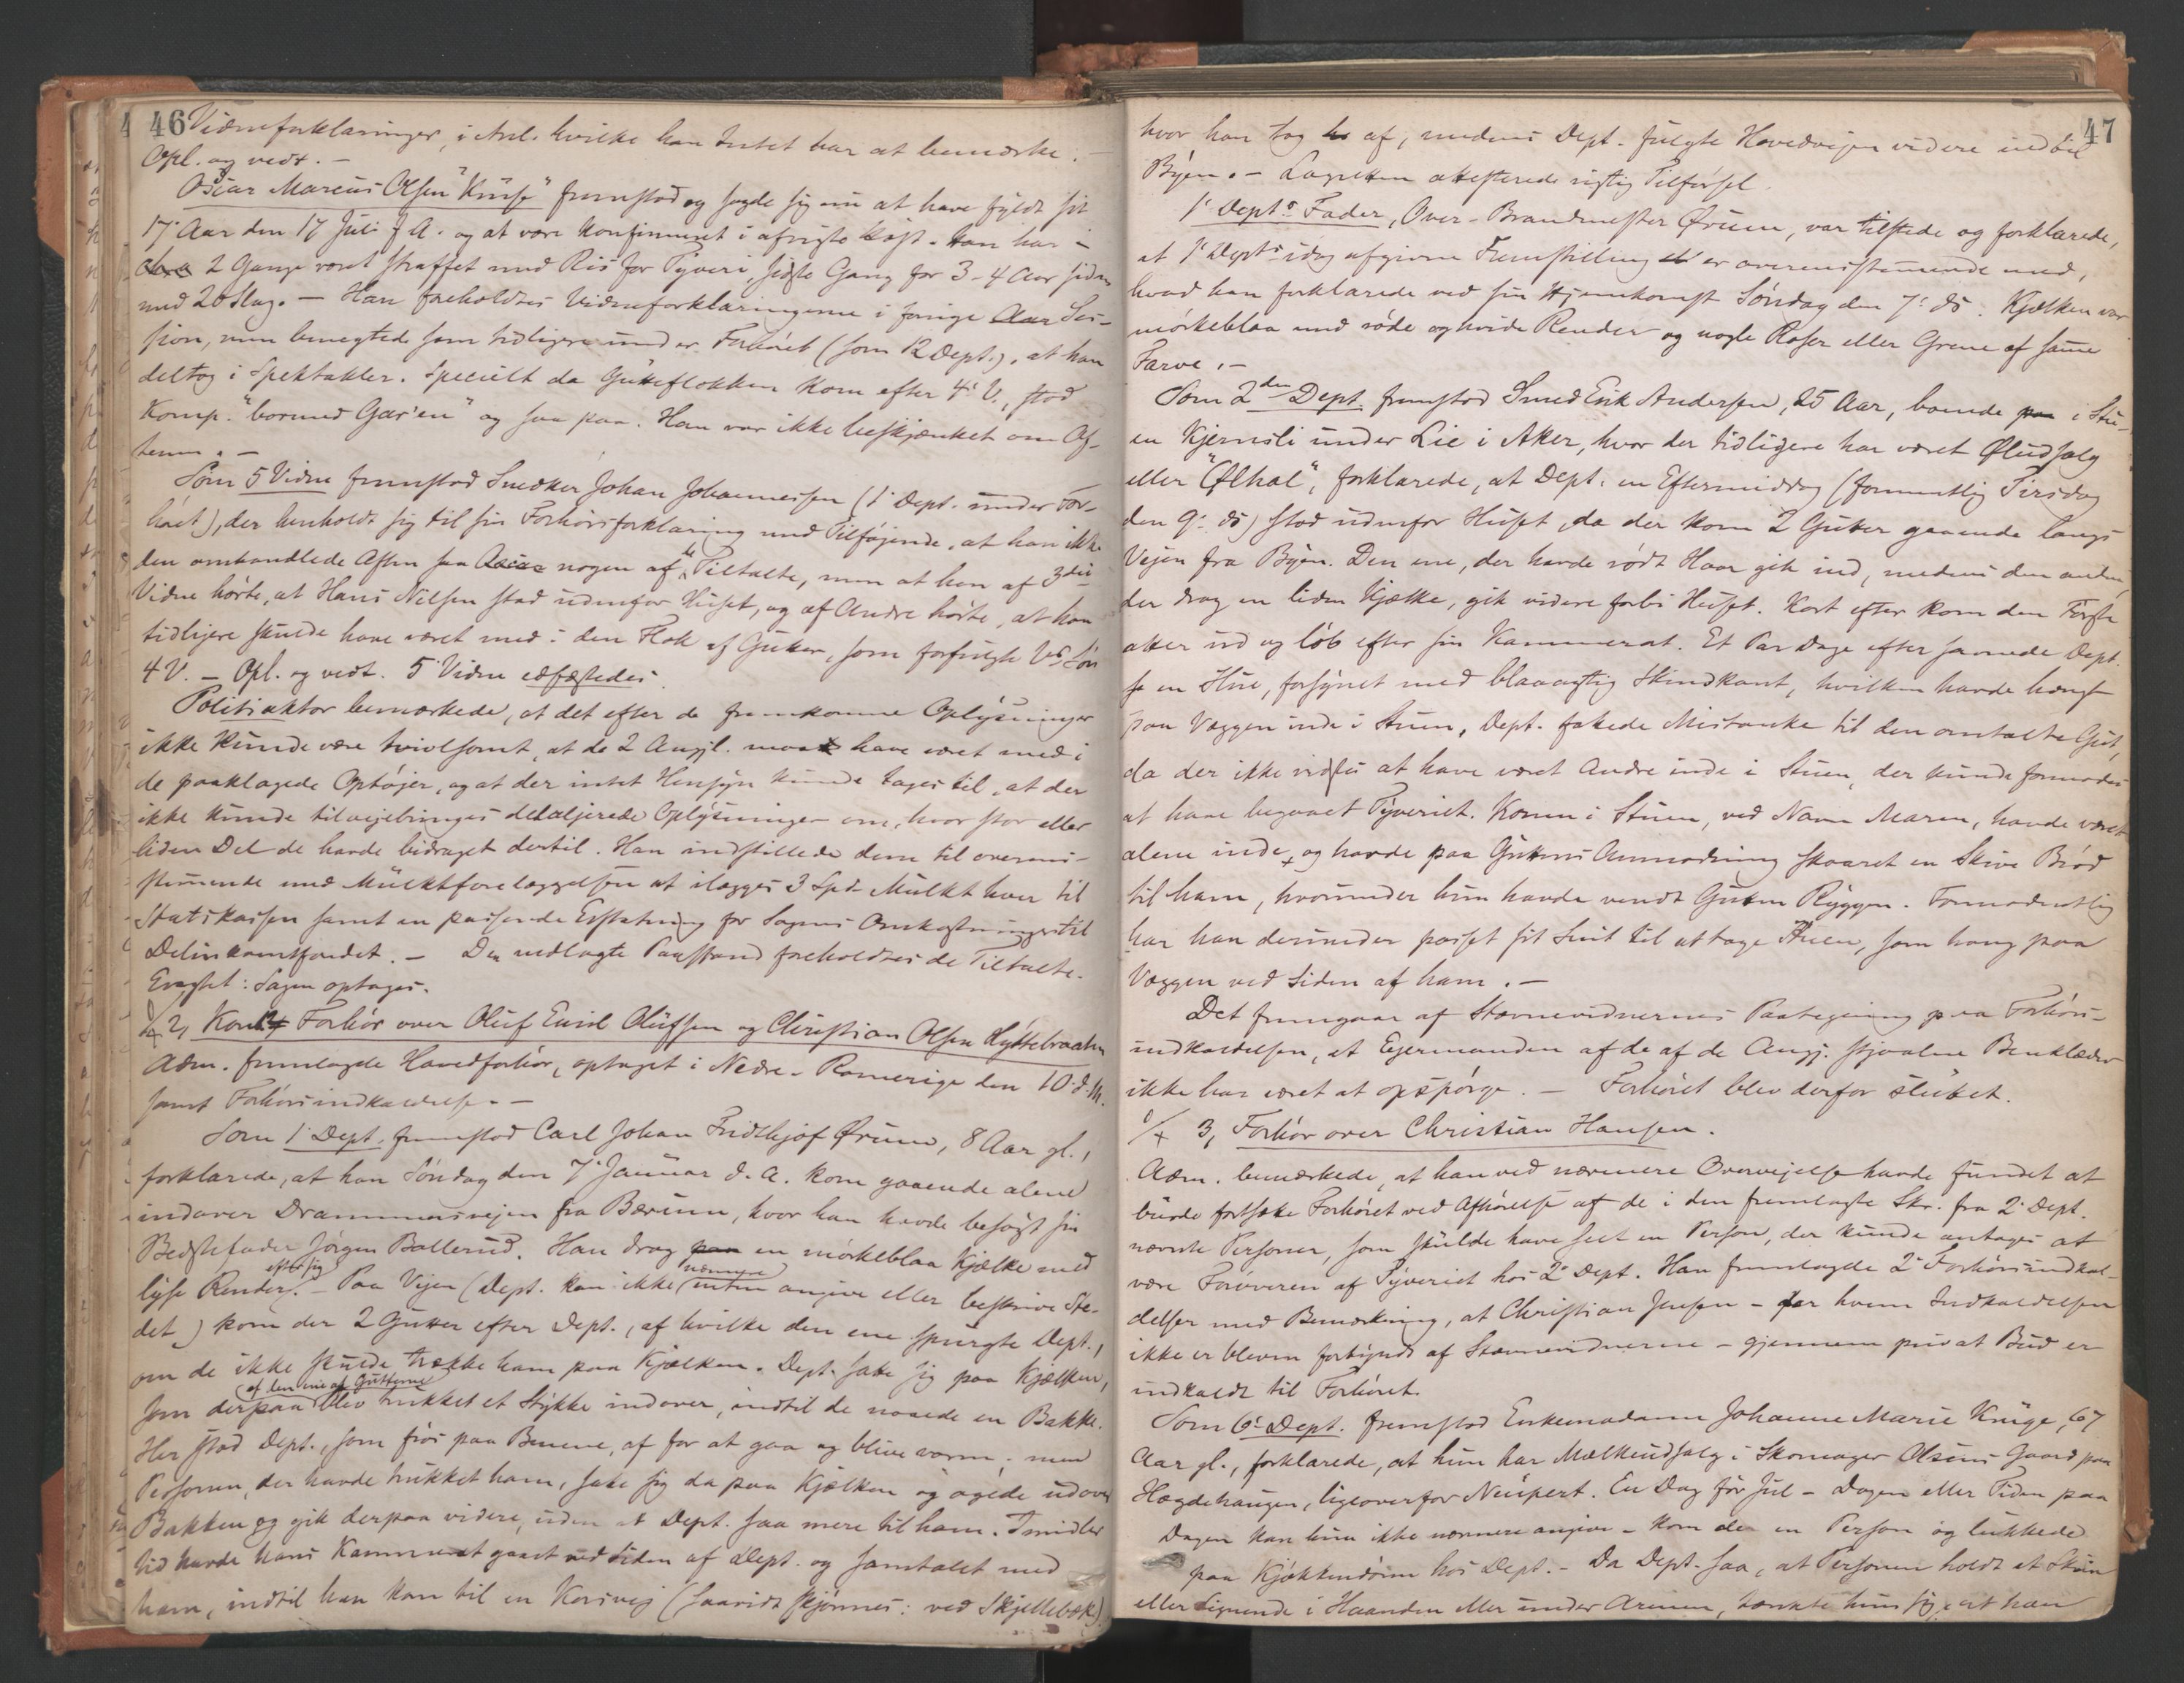 46
Vidneforklaringer, i Anl. hvilke han Intet har at bemærke. -
Opl. og vedt. -
Oscar Marcus Olsen "Knise" fremstod og sagde sig nu at have fyldt sit
17' Aar den 17 Juli f A. og at være konfirmeret i afvigte Høst. Han har -
2 Gange været straffet med Ris for Tyveri, sidste Gang for 3-4 Aar siden
med 20 Slag. - Han foreholdtes Vidneforklaringerne i forrige Ses-
sion, men benegtede som tidligere under Forhöret (som 12 Dept.), at han
deltog i Spektakler. Specielt da Gutteflokken kom efter 4' V., stod
Komp. "bormed Gar'en" og saa paa. Han var ikke beskjænket om Af-
tenen. -
Som 5 Vidne fremstod Snedker Johan Johannessen (1' Dept. under For-
höret), der henholdt sig til sin Forhörsforklaring med Tilföjende, at han ikke
den omhandlede Aften saa nogen af Tiltalte, men at han af 3die
Vidne hörte, at Hans Nilsen stod udenfor Huset, og af Andre hörte, at han
tidligere skulde have været med i den Flok af Gutter, som forfulgte Vds Sön
4 V. - Opl. og vedt. 5' Vidne edfæstedes.
Politiaktor bemærkede, at det efter de fremkomne Oplysninger
ikke kunde være tvivlsomt, at de 2 Angjl. maatte have været med i
de paaklagede Optöjer, og at der intet Hensyn kunde tages til, at der
ikke kunde tilvejebringes detaljerede Oplysninger om, hvor stor eller
liden Del de havde bidraget dertil. Han indstillede dem til overens-
stemmende med Mulktforelæggelsen at ilægges 3 Spd. Mulkt hver til
Statskassen samt en passende Erstatning for Sagens Omkostninger til
Delinkventfondet. - Den nedlagte Paastand foreholdtes de Tiltalte.
Eragtet: Sagen optages.
2, Kont. Forhör over Oluf Emil Olufsen og Christian Olsen Hyttebraaten
Adm. fremlagde Hovedforhör, optaget i Nedre-Romerige den 10. d. M.
samt Forhörsindkaldelse. -
Som 1' Dept. fremstod Carl Johan Fridthjof Ørum, 8 Aar gl.,
forklarede, at han Söndag den 7' Januar d. A. kom gaaende alene
indover Drammensvejen fra Bærum, hvor han havde besögt sin
Bedstefader Jörgen Ballerud. Han drog paa en mörkeblaa Kjælke med
efter sig
nærmere
lyse Render. - Paa Vejen (Dept. kan ikke angive eller beskrive Ste-
det) kom der 2 Gutter efter Dept., af hvilke den ene spurgte Dept.,
om de ikke skulde trække ham paa Kjælken. Dept. satte sig paa Kjælken,
af den ene af Gutterne
som derpaa blev trukket et Stykke indover, indtil de naaede en Bakke.
Her stod Dept., som frös paa Benene, af for at gaa og blive varm; men
Personen, der havde trukket ham, satte sig da paa Kjælken og agede udover
Bakken og gik derpaa videre, uden at Dept. saa mere til ham. Imidler
tid havde hans Kammerat gaaet ved Siden af Dept. og samtalet med
ham, indtil han kom til en Korsvej (saavidt skjönnes: ved Skjellebæk),
47
hvor han tog af, medens Dept. fulgte Hovedvejen videre indtil
Byen. - Lagretten attesterede rigtig Tilförsel.
1' Dept.s Fader, Over-Brandmester Ørum, var tilstede og forklarede,
at 1' Dept.s idag afgivne Fremstilling er overensstemmende med,
hvad han forklarede ved sin Hjemkomst Söndag den 7' ds. Kjælken var
mörkeblaa med röde og hvide Render og nogle Roser eller Grene af samme
Farve. -
Som 2den Dept. fremstod Smed Erik Andersen, 25 Aar, boende paa i Stu-
en Kjernsli under Lie i Aker, hvor der tidligere har været Øludsalg
eller "Ølhal", forklarede, at Dept. en Eftermiddag (formentlig Tirsdag
den 9' ds) stod udenfor Huset, da der kom 2 Gutter gaaende langs
Vejen fra Byen. Den ene, der havde rödt Haar gik ind, medens den anden,
der drog en liden Kjælke, gik videre forbi Huset. Kort efter kom den Förste
atter ud og löb efter sin Kammerat. Et Par Dage efter savnede Dept.
en Hue, forsynet med blaaagtig Skindkant, hvilken havde hængt
paa Væggen inde i Stuen, Dept. fattede Mistanke til den omtalte Gut,
da der ikke vidstes at have været Andre inde i Stuen, der kunde formodes
at have begaaet Tyveriet. Konen i Stuen, ved Navn Maren, havde været
alene inde, og havde paa Guttens Anmodning skaaret en Skive Bröd
til ham, hvorunder hun havde vendt Gutten Ryggen. Formodentlig
har han derunder passet sit Snit til at tage Huen, som hang paa
Væggen ved Siden af ham. -
Det fremgaar af Stævnevidnernes Paategning paa Forhörs-
indkaldelsen, at Ejermanden af de af de Angj. stjaalne Benklæder
ikke har været at opspörge. - Forhöret blev derfor sluttet.
3, Forhör over Christian Hansen.
Adm. bemærkede, at han ved nærmere Overvejelse havde fundet at
burde fortsætte Forhöret ved Afhörelse af de i den fremlagte Skr. fra 2' Dept.
nævnte Personer, som skulde have seet en Person, der kunde antages at
være Forøveren af Tyveriet hos 2' Dept. Han fremlagde 2' Forhörsindkal-
delser med Bemærkning, at Christian Jensen - for hvem Indkaldelsen
ikke er bleven forkyndt af Stævnevidnerne - gjennem privat Bud er
indkaldt til Forhöret.
Som 6' Dept. fremstod Enkemadame Johanne Marie Kruge, 67
Aar gl., forklarede, at hun har Mælkeudsalg i Skomager Olsens Gaard paa
Hægdehaugen, ligeoverfor Neupert. En Dag för Jul - Dagen eller Tiden paa
Dagen kan hun ikke nærmere angive - kom der en Person og lukkede
paa Kjøkkendören hos Dept. - Da Dept. saa, at Personen holdt et
eller Lignende i Haanden eller under Armen, tænkte hun sig, at han